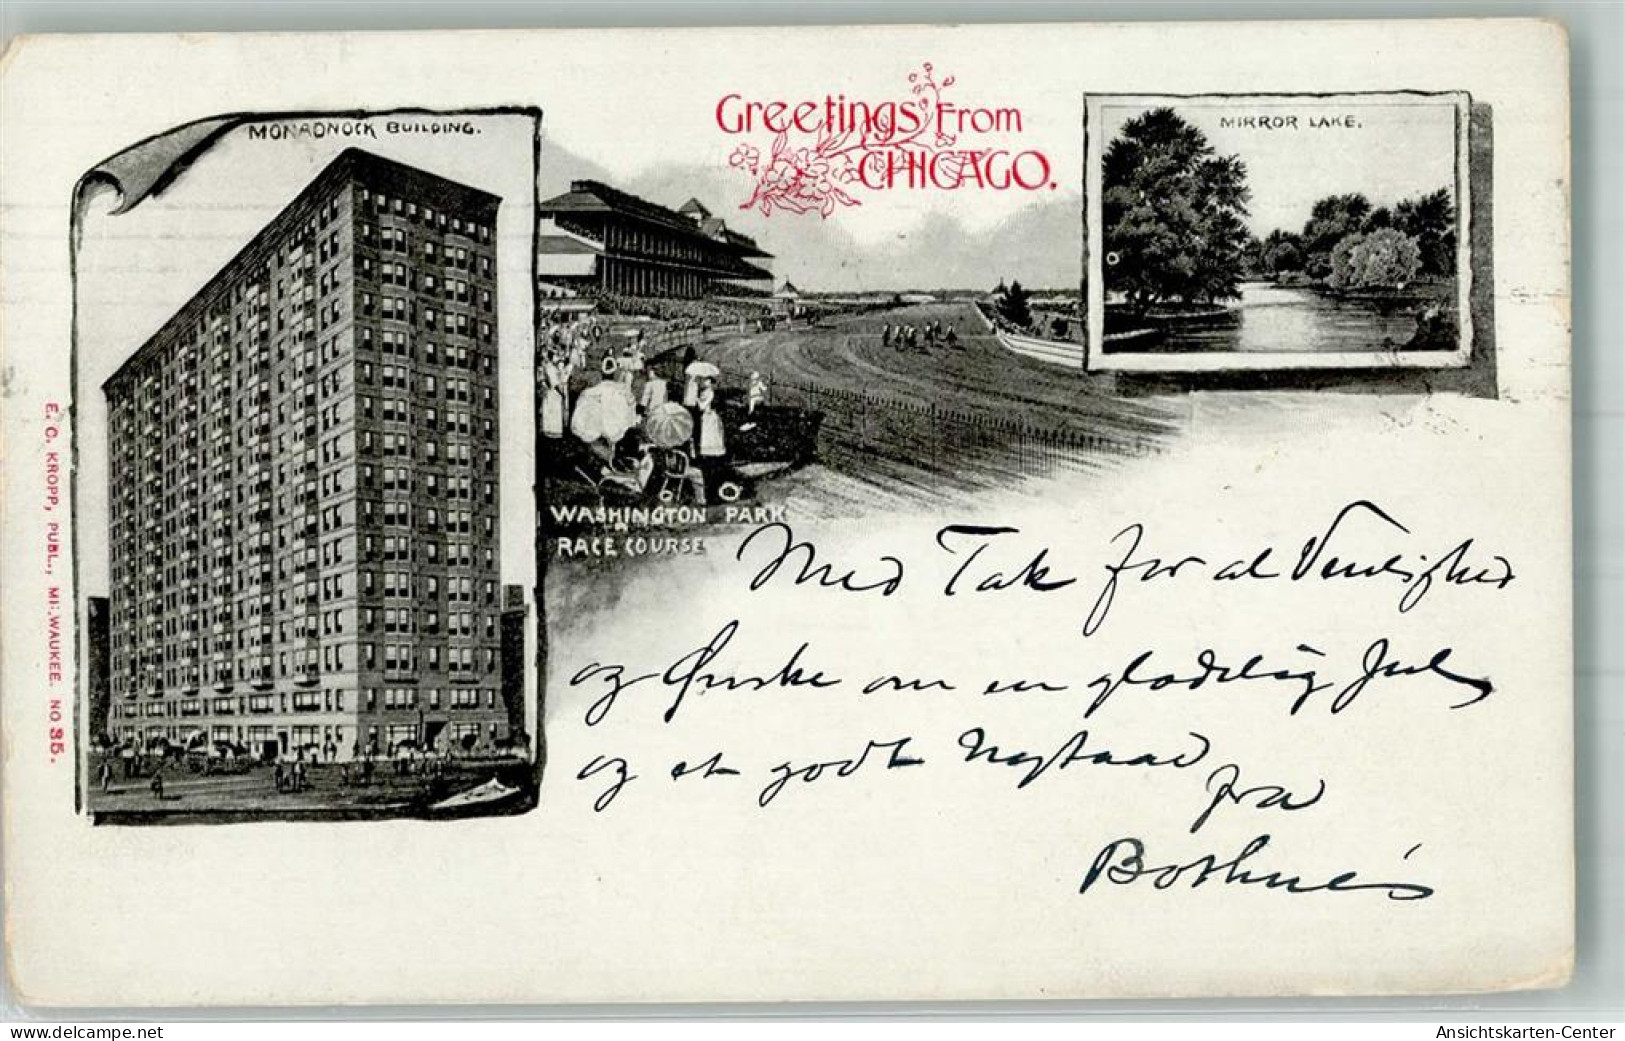 MONADNOCK BUILDING.
Greetings From
CHICAGO.
MIRROR LAKE.
WASHINGTON PARK
RACE COURSE
E. C. KROPP, PUBL., MILWAUKEE. NO 35.
Med Tak for al Venlighed
og Ønske om en glædelig Jul
og et godt Nytaar
fra
delcampe.net
Ansichtskarten-Center